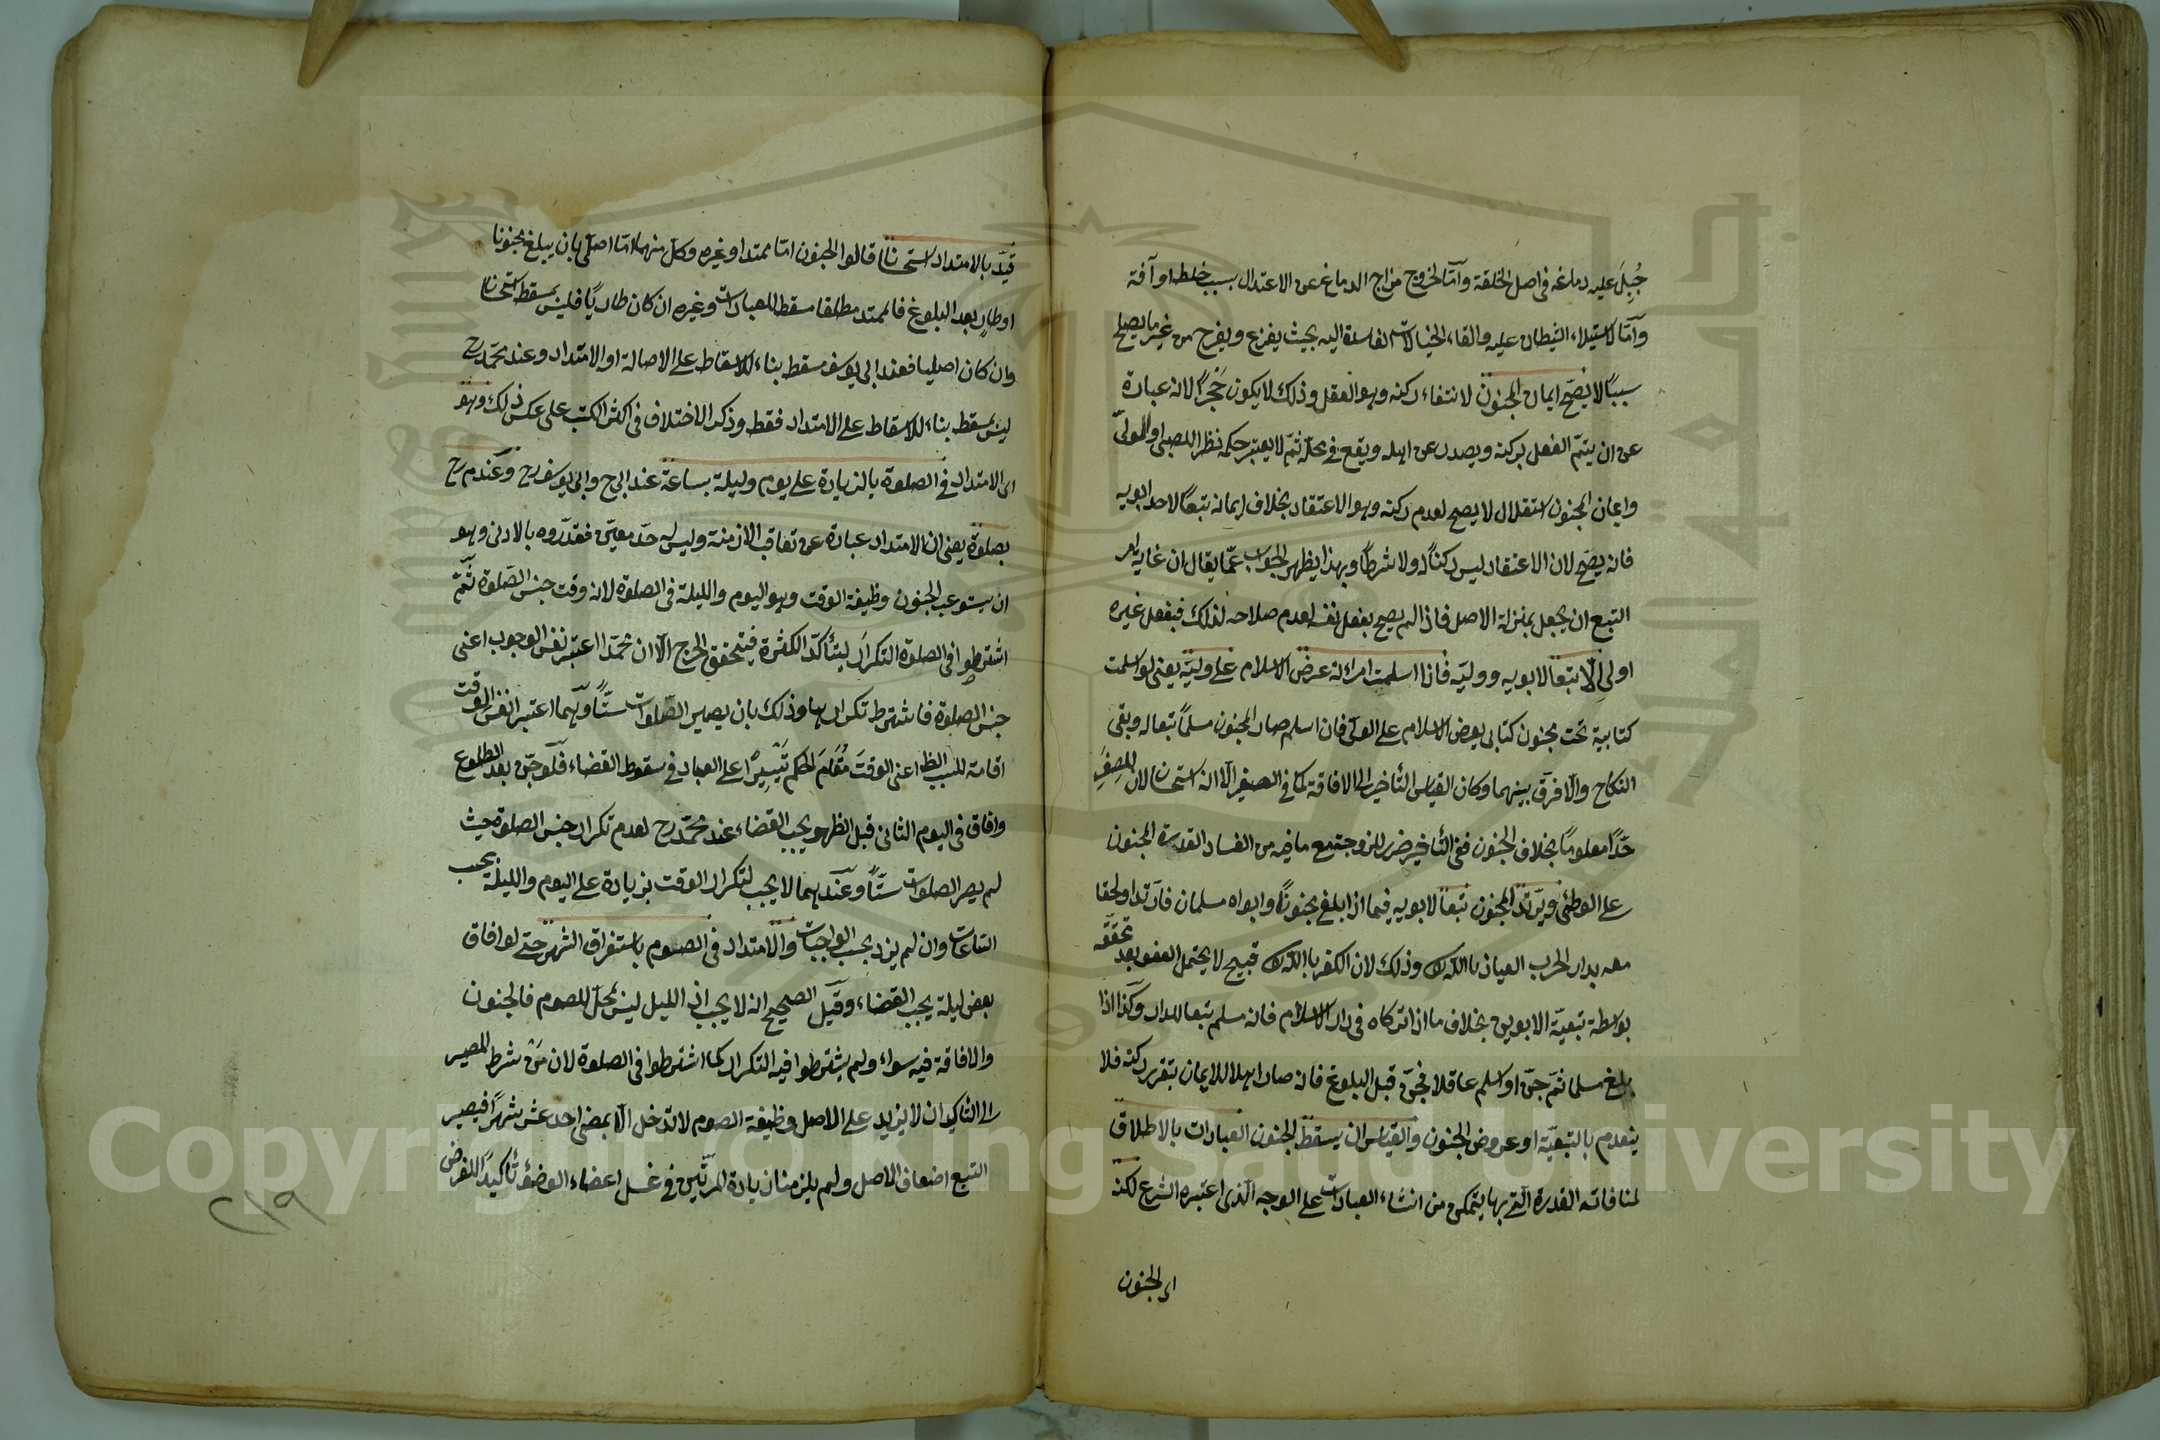 جُبِلَ عليه دماغه في اصل الخلقة وامّا لخروج مزاج الدماغ عن الاعتدال بسبب خلط او آفة
وامّا لاستيلاء الشيطان عليه والقاء الخيالات الفاسدة اليه بحيث يفزع ويفرح من غير ما يصلح
سببًا لا يصّح ايمان المجنون لانتفاء ركنه وهو العقل وذلك لا يكون حَجرًا لانه عبارة
عن ان يتمّ الفعل بركنه ويصدر عن اهله ويقع في محلّه ثمّ لا يعتبر حكمه نظرا للصبي او المولىّ
وايمان المجنون استقلالا لا يصح لعدم ركنه وهو الاعتقاد بخلاف ايمانه تبعًا لاحد ابويه
فانه يصّح لان الاعتقاد ليس ركنًا له ولا شرطًا وبهذا يظهر الجواب عمّا يقال ان غاية امر
التبع ان يجعل بمنزلة الاصل فاذا لم يصح بفعل نفسه لعدم صلاحه لذلك فبفعل غيره
اولى الّا تبعًا لابويه ووليّه فاذا اسلمت امرأته عرض الاسلام على وليّه يعنى لو اسلمت
كتابية تحت مجنون كتابى يعرض الاسلام على الولى فان اسلم صار المجنون مسلمًا تبعا له وبقى
النكاح والّا فرق بينهما وكان القياس التأخير الى الافاقة كما في الصغير الّا انه استحسان لان للصغر
حدًّا معلومًا بخلاف الجنون ففى التأخير ضرر للزوجة مع ما فيه من الفساد لقدرة المجنون
على الوطئ ويرتدّ المجنون تبعًا لابويه فيما اذا بلغ مجنونًا وابواه مسلمان فارتدا ولحقا
معه بدار الحرب العياذ بالله وذلك لان الكفر بالله قبيح لا يحتمل العفو بعد تحققه
بواسطة تبعيّة الابوين بخلاف ما اذا تركاه في دار الاسلام فانه مسلم تبعا للدار وكذا اذا
بلغ مسلما ثمّ جنّ او اسلم عاقلا فجنّ قبل البلوغ فانه صار اهلا للايمان بتقرر ركنه فلا
ينعدم بالتبعيّة او عروض الجنون والقياس ان يسقط الجنون العبادات بالاطلاق
لمنافاته القدرة الّتى بها يتمكن من انشاء العبادات على الوجه الّذى اعتبره الشرع لكنّه
اى الجنون
قيدّ بالامتداد استحسانا قالوا الجنون امّا ممتد او غيره وكل منهما امّا اصلّى بان يبلغ مجنونا
او طارٍ بعد البلوغ فالممتد مطلقا مسقط للعبادات وغيره ان كان طاريًا فليس بمسقط استحسانا
وان كان اصليا فعند ابى يوسف مسقط بناء للاسقاط على الاصالة او الامتداد وعند محمّد رح
ليس بمسقط بناء للاسقاط على الامتداد فقط وذكر الاختلاف في اكثر الكتب على عكس ذلك وهو
اى الامتداد في الصلوة بالزيادة على يوم وليلة بساعة عند ابى ح وابى يوسف رح وعند م رح
بصلوة يعنى ان الامتداد عبارة عن تعاقب الازمنة وليس له حدّ معيّن فقدّروه بالادنى وهو
ان يستوعب الجنون وظيفة الوقت وهو اليوم والليلة في الصلوة لانه وقت جنس الصّلوة ثمّ
اشترطوا في الصلوة التكرار ليتأكدّ الكثرة فيتحقق الحرج الّا ان محمّدا اعتبر نفس الوجوب اعنى
جنس الصلوة فاشترط تكرارها وذلك بان يصير الصّلوات ستًّا وهما اعتبرا نفس الوقت
اقامة للسبب الظ اعنى الوقتَ مُقَامَ الحكم تيسيرًا على العباد في سقوط القضاء فلو جنّ بعد الطلوع
وافاق في اليوم الثانى قبل الظهر يجب القضاء عند محمّد رح لعدم تكرار جنس الصلوة حيث
لم يصر الصلوات ستًّا وعندهما لا يجب لتكرار الوقت بزيادة على اليوم والليلة بحسب
الساعات وان لم يزد بحسب الواجبات والامتداد في الصوم باستغراق الشهر حتى لو افاق
بعض ليلة يجب القضاء وقيل الصحيح انه لا يجب اذ الليل ليس بمحلّ للصوم فالجنون
والافاقة فيه سواء ولم يشترطوا فيه التكرار كما اشترطوا في الصلوة لان من شرط المصير
الى التأكيد ان لا يزيد على الاصل وظيفة الصوم لا تدخل الّا بمضى احد عشر شهرًا فيصير
التبع اضعاف الاصل ولم يلزمنا زيادة المرّتين في غسل اعضاء الوضوء تأكيدًا للفرض
٢١٩
Copyright © King Saud University